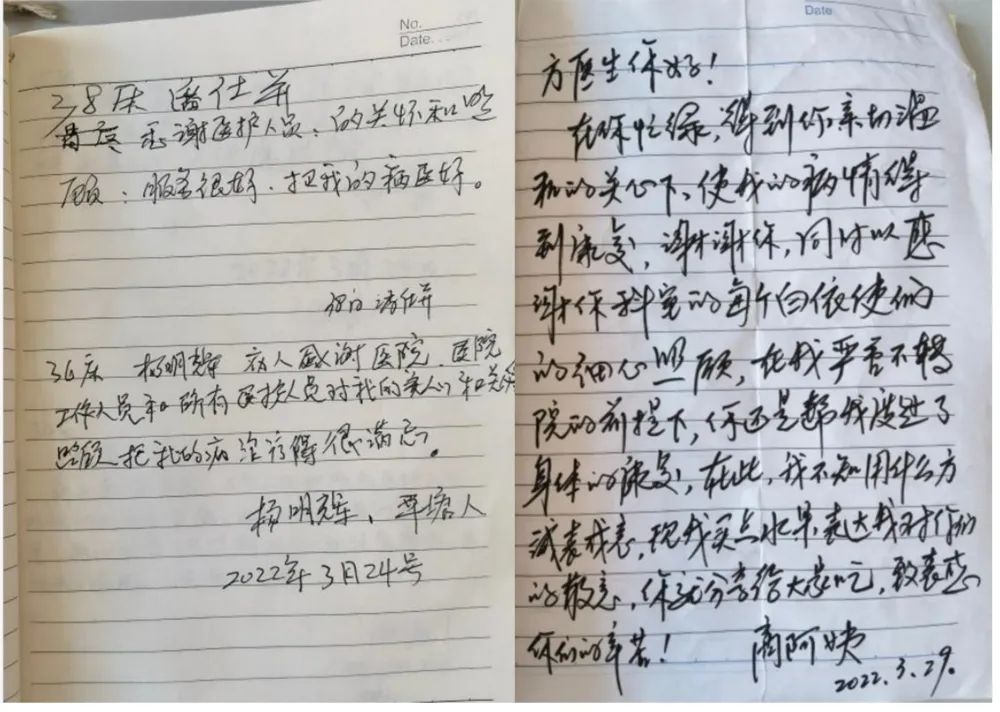 No.
Date...
38床潘仕英
感谢医护人员,的关怀和照
顾:服务很好.把我的病医好。
36床 杨明辉 病人感谢医院.医院
工作人员和所有医护人员对我的关心和关怀
照顾把我的病治疗得很满意。
杨明辉、覃塘人
2022年3月24号
Date
方医生你好!
在你忙绿,得到你亲切温
和的关心下、使我的病情得
到康复,谢谢你,同时以感
谢你科室的每个白依使们
的细心照顾,在我严否不转
院的前提下,你还是帮我度过了
身体的康复,在此,我不知用什么方
诚表我意,现我买点水果表达我对你们
的敬意,你就分享给大家吃,致表感
你们的辛苦!
商阿姨
2022.3.29.